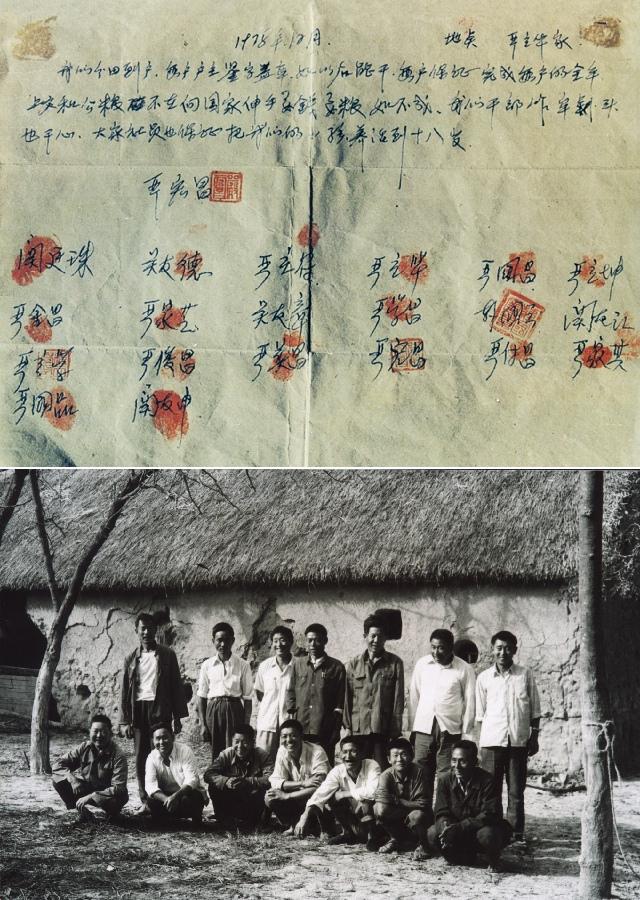 1978年12月. 地点 严立华家
我们分田到户,每户户主签字盖章,如以后能干,每户保证完成每户的全年
上交和公粮不在向国家伸手要钱要粮如不成,我们干部作牢剎头
也干心,大家社员也保证把我们的小孩养活到十八岁.
严宏昌
关廷珠 关友德 严立符 严立华 严国昌 严立坤
严金昌 严家芝 关友章 严学昌 韩国云 关友江
严立学 严俊昌 严美昌 严宏昌 严付昌 严家其
严国品 关友申